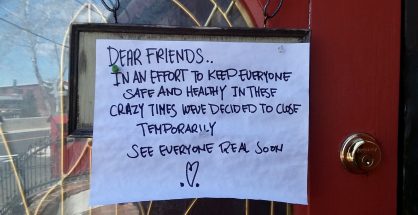 DEAR FRIENDS..
IN AN EFFORT TO KEEP EVERYONE
SAFE AND HEALTHY IN THESE
CRAZY TIMES WEVE DECIDED TO CLOSE
TEMPORARILY
SEE EVERYONE REAL SOON